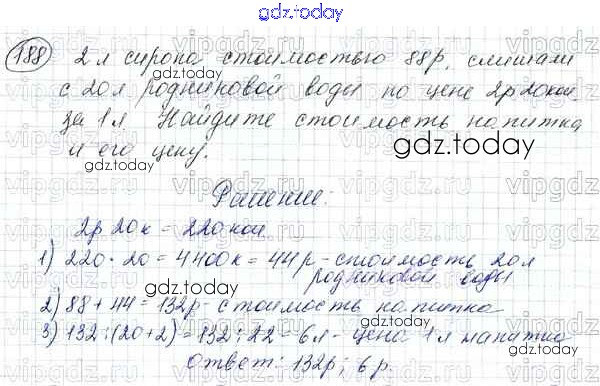 gdz.today
188 2 л сиропа стоимостью 88р. смешали
с 20 л родниковой воды по цене 2р 20коп.
за 1 л. Найдите стоимость напитка
и его цену.
gdz.today
Решение:
2р 20к = 220коп
1) 220 · 20 = 4400к = 44р - стоимость 20л
родниковой воды
2) 88 + 44 = 132р - стоимость напитка
3) 132 : (20+2) = 132 : 22 = 6л - цена 1л напитка
Ответ: 132р; 6р.
gdz.today